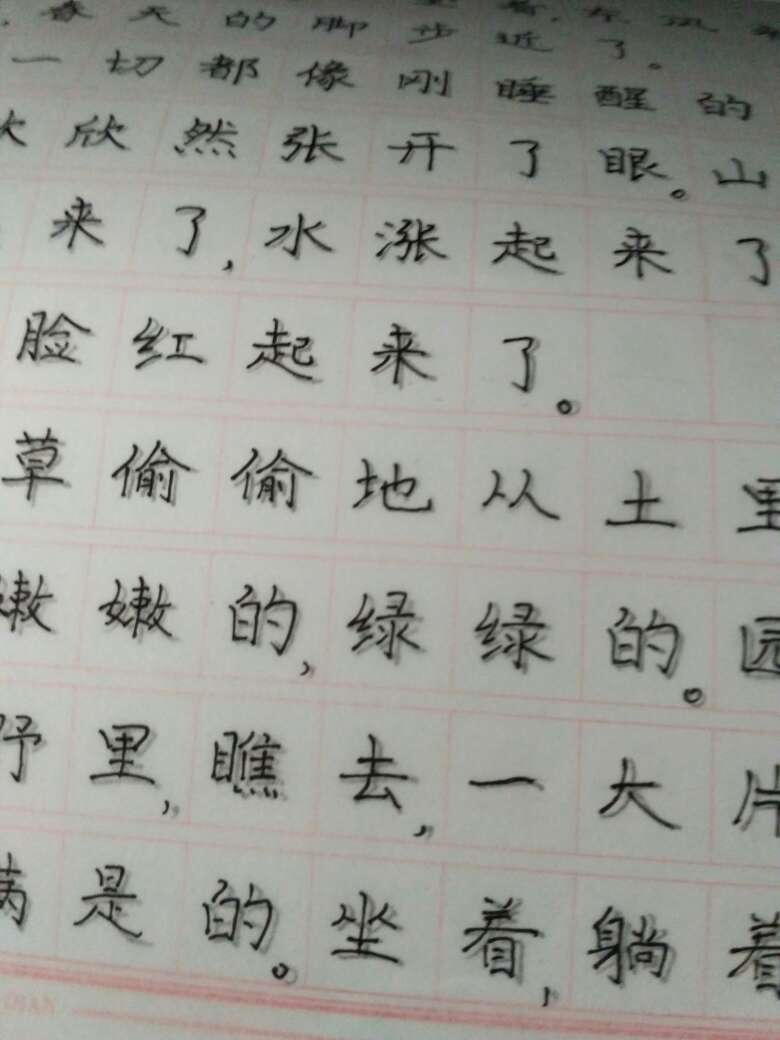 春天的脚步近了。
一切都像刚睡醒的
欣然张开了眼。山
来了,水涨起来了
脸红起来了。
草偷偷地从土里
嫩嫩的,绿绿的。园
野里,瞧去,一大片
满是的。坐着,躺着
DIAN